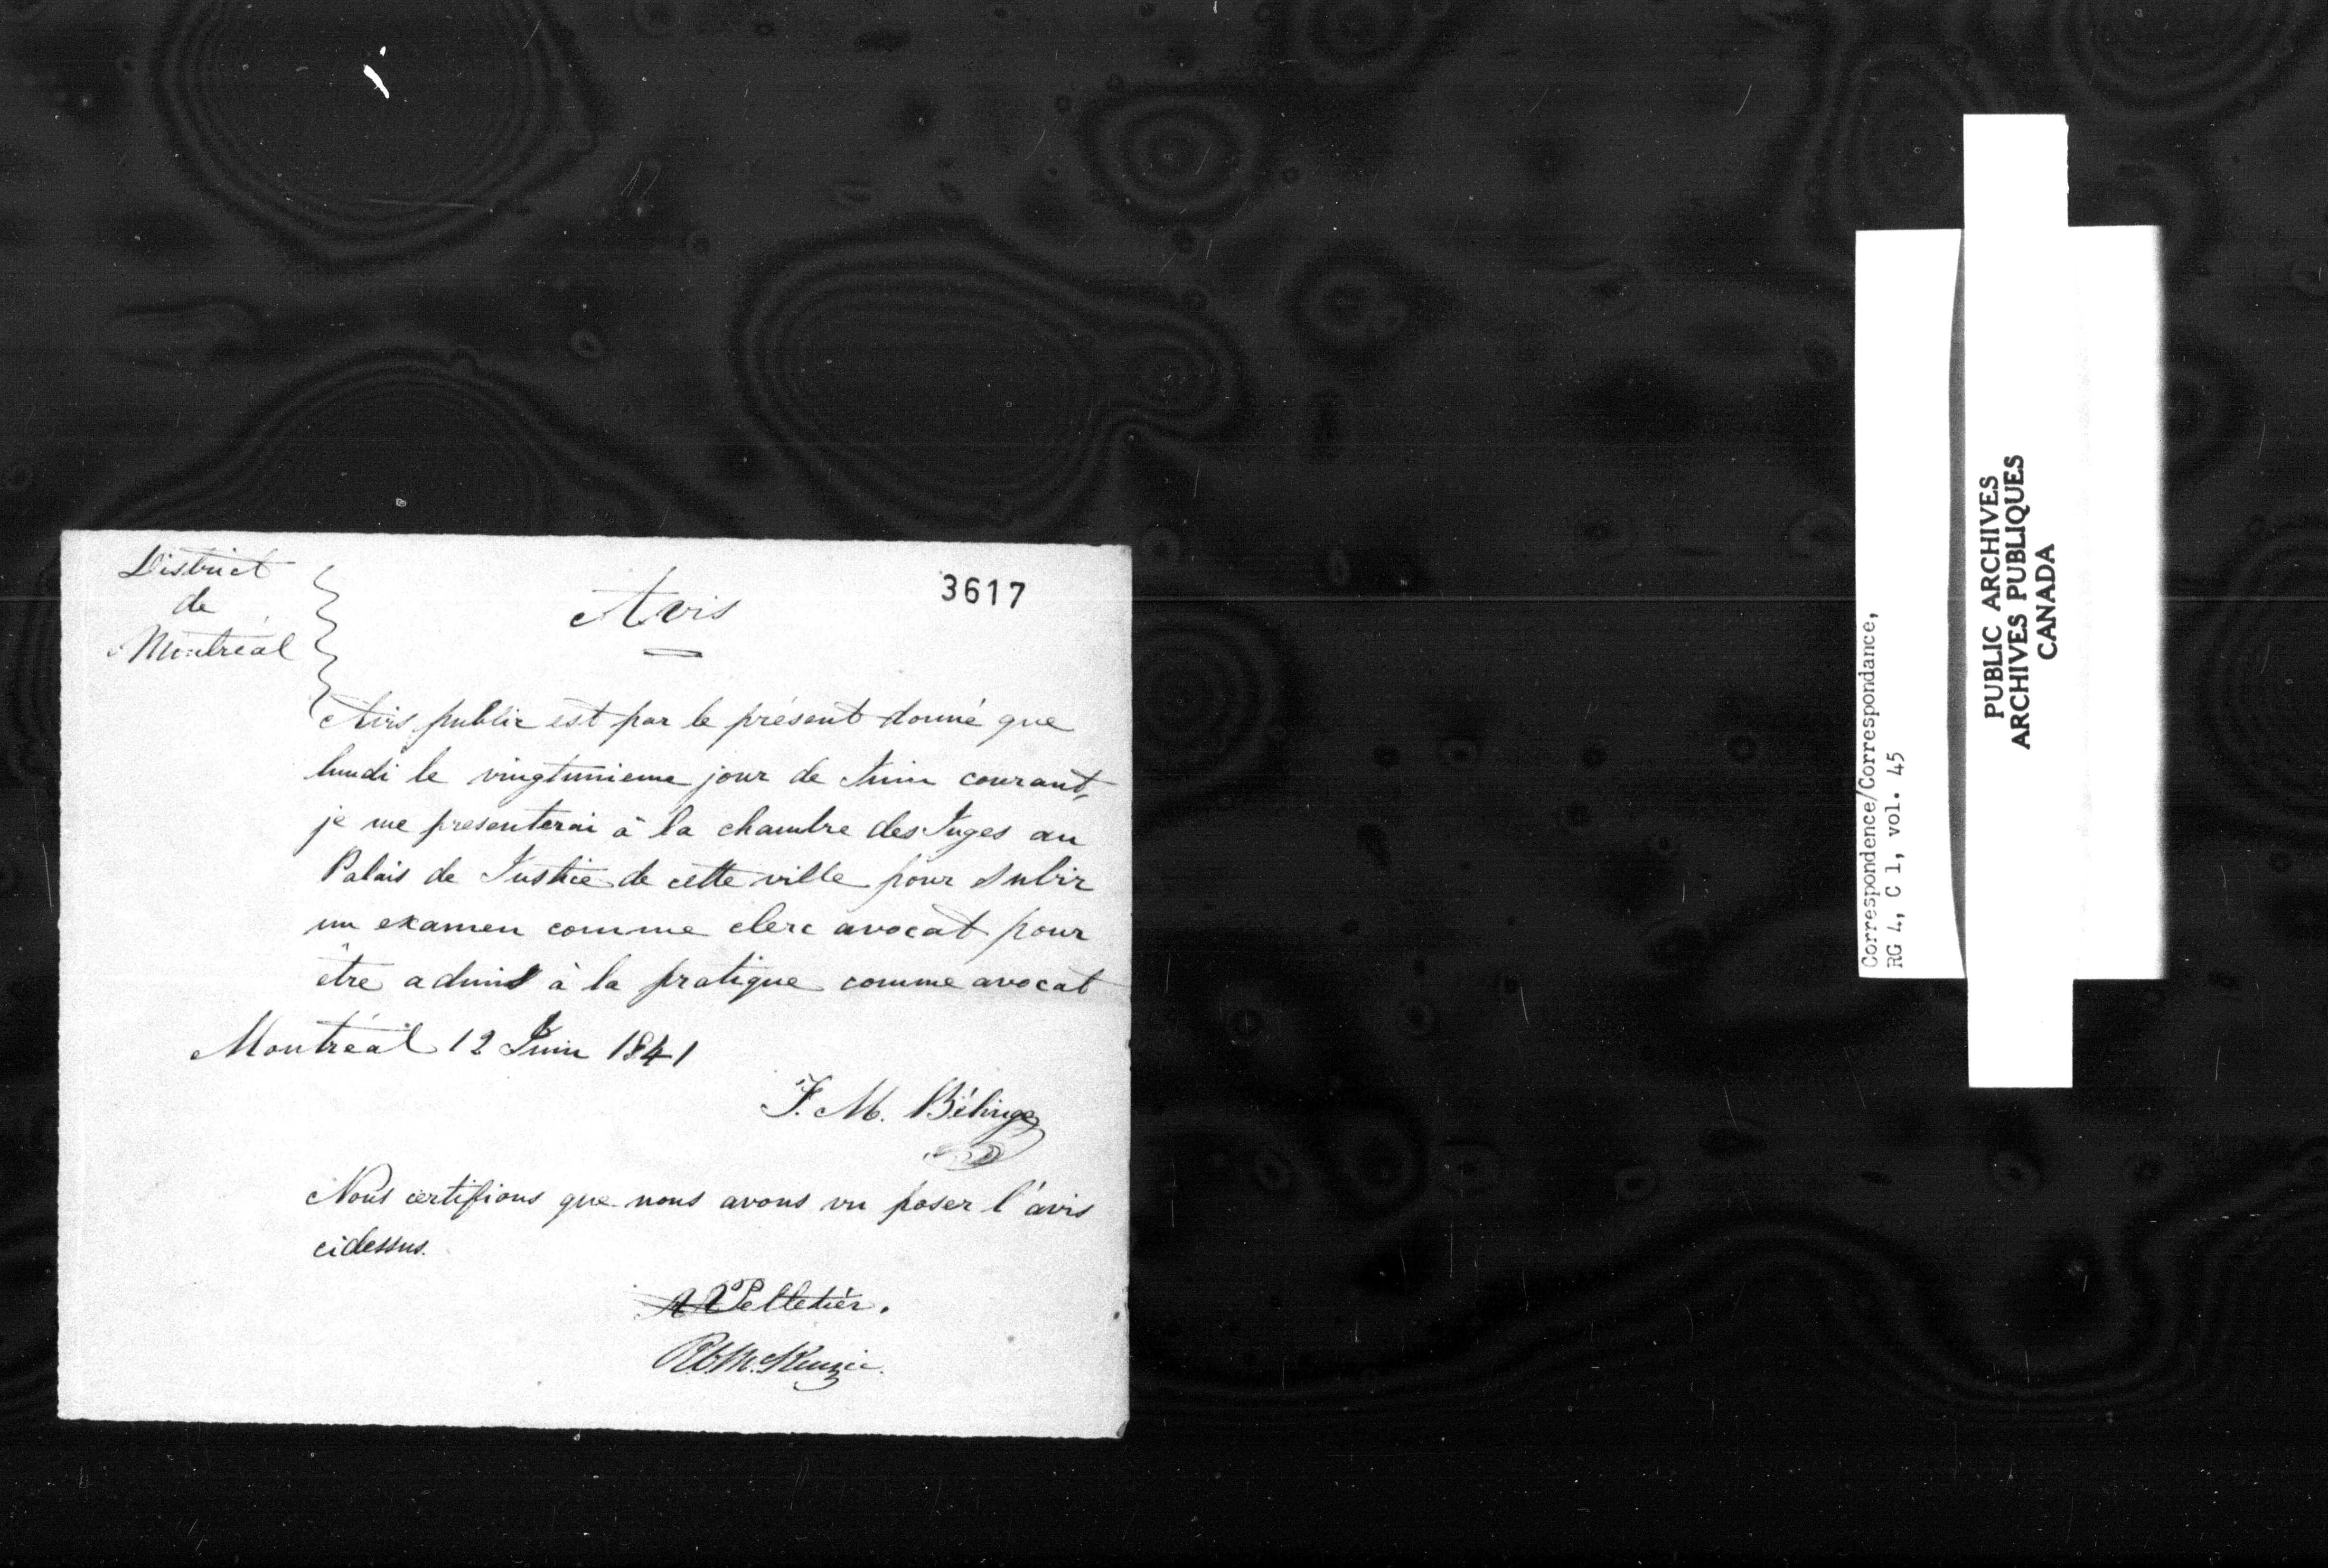 District
de
Montréal
Avis
3617
Avis public est par le présent donné que
lundi le vingtunieme jour de Juin courant,
je me presenterai à la chambre des Juges au
Palais de Justice de cette ville pour subir
un examen comme clerc avocat pour
être admis à la pratique comme avocat
Montréal 12 Juin 1841
J. M. Bélinge
Nous certifions que nous avons vu poser l'avis
cidessus.
Pelletier.
McKenzie.
Correspondence/Correspondance,
RG 4, C 1, vol. 45
PUBLIC ARCHIVES
ARCHIVES PUBLIQUES
CANADA